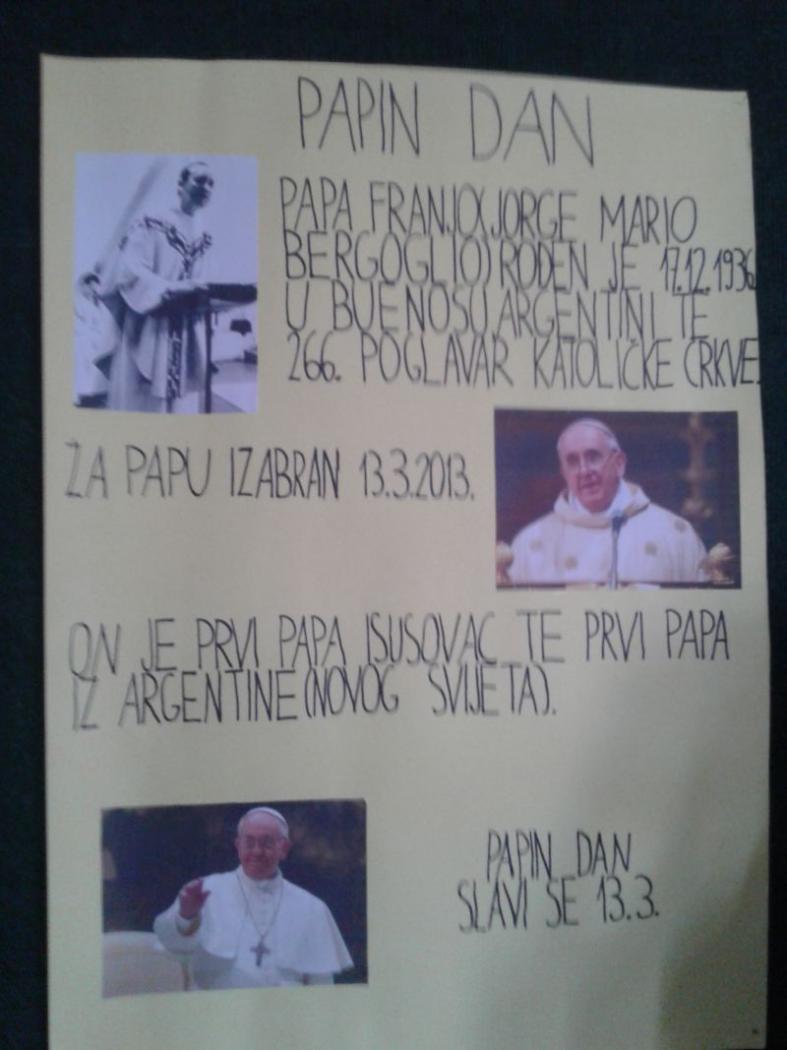 PAPIN DAN
PAPA FRANJO(JORGE MARIO
BERGOGLIO) ROĐEN JE 17.12.1936
U BUENOSU,ARGENTINI TE
266. POGLAVAR KATOLIČKE CRKVE.
ZA PAPU IZABRAN 13.3.2013.
ON JE PRVI PAPA ISUSOVAC TE PRVI PAPA
IZ ARGENTINE(NOVOG SVIJETA).
PAPIN DAN
SLAVI SE 13.3.